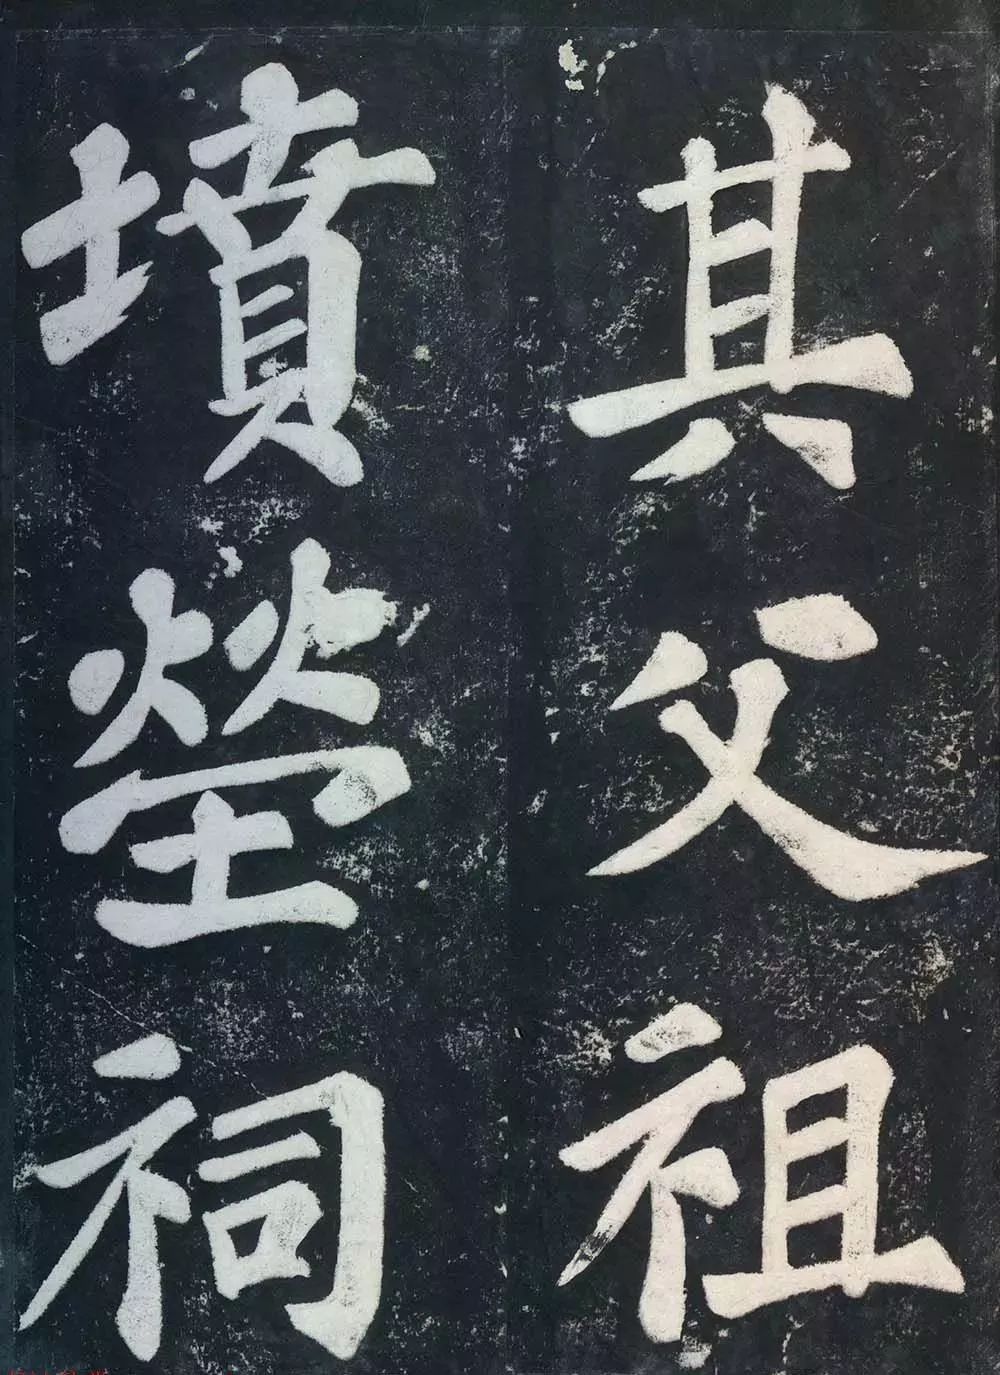 其父祖
墳塋祠